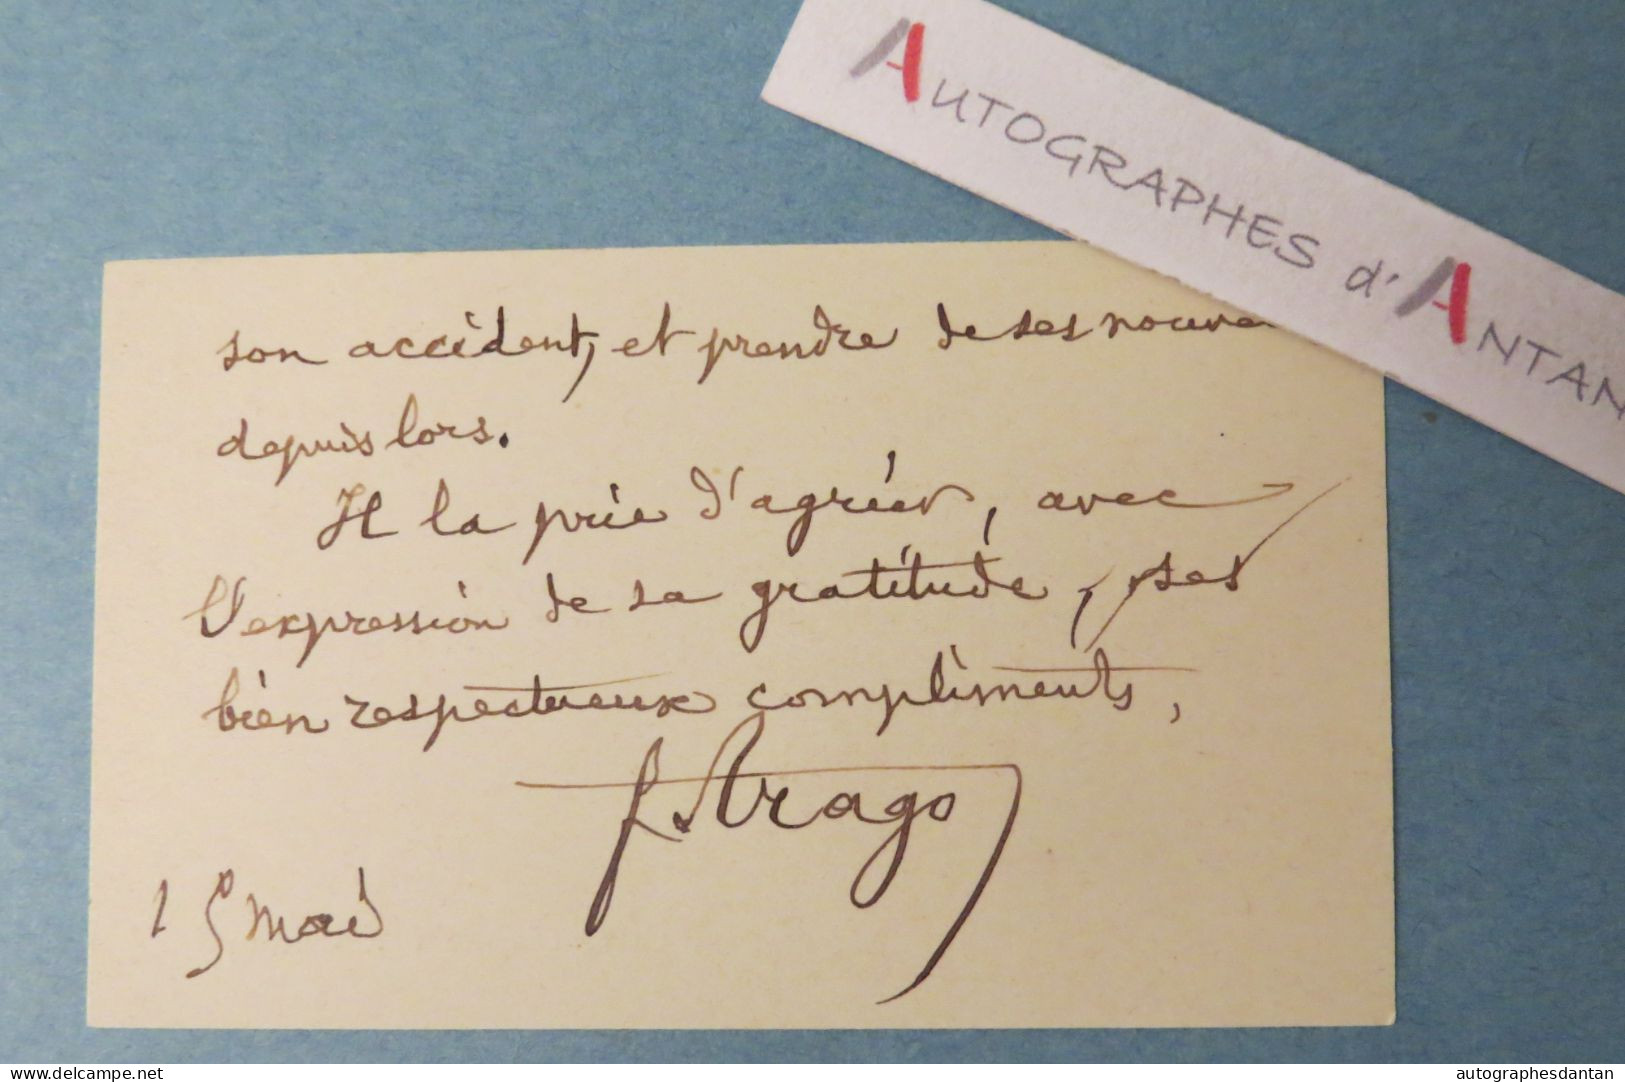 AUTOGRAPHES d'ANTAN
son accident, et prendre de ses nouve
depuis lors.
Il la prie d'agréer, avec
l'expression de sa gratitude, ses
bien respectueux compliments,
F. Arago
15 mai
www.delcampe.net
autographesdantan